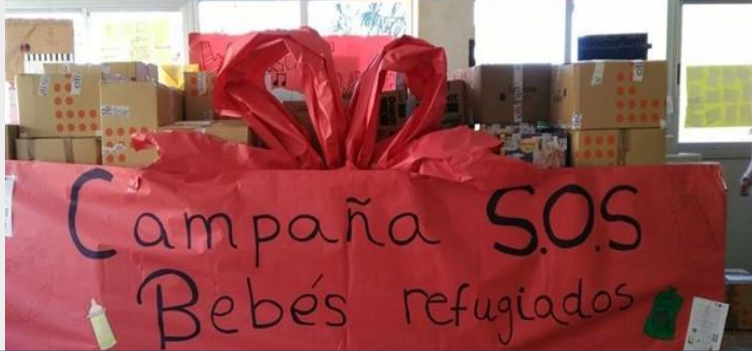 Campaña S.O.S
Bebés refugiados